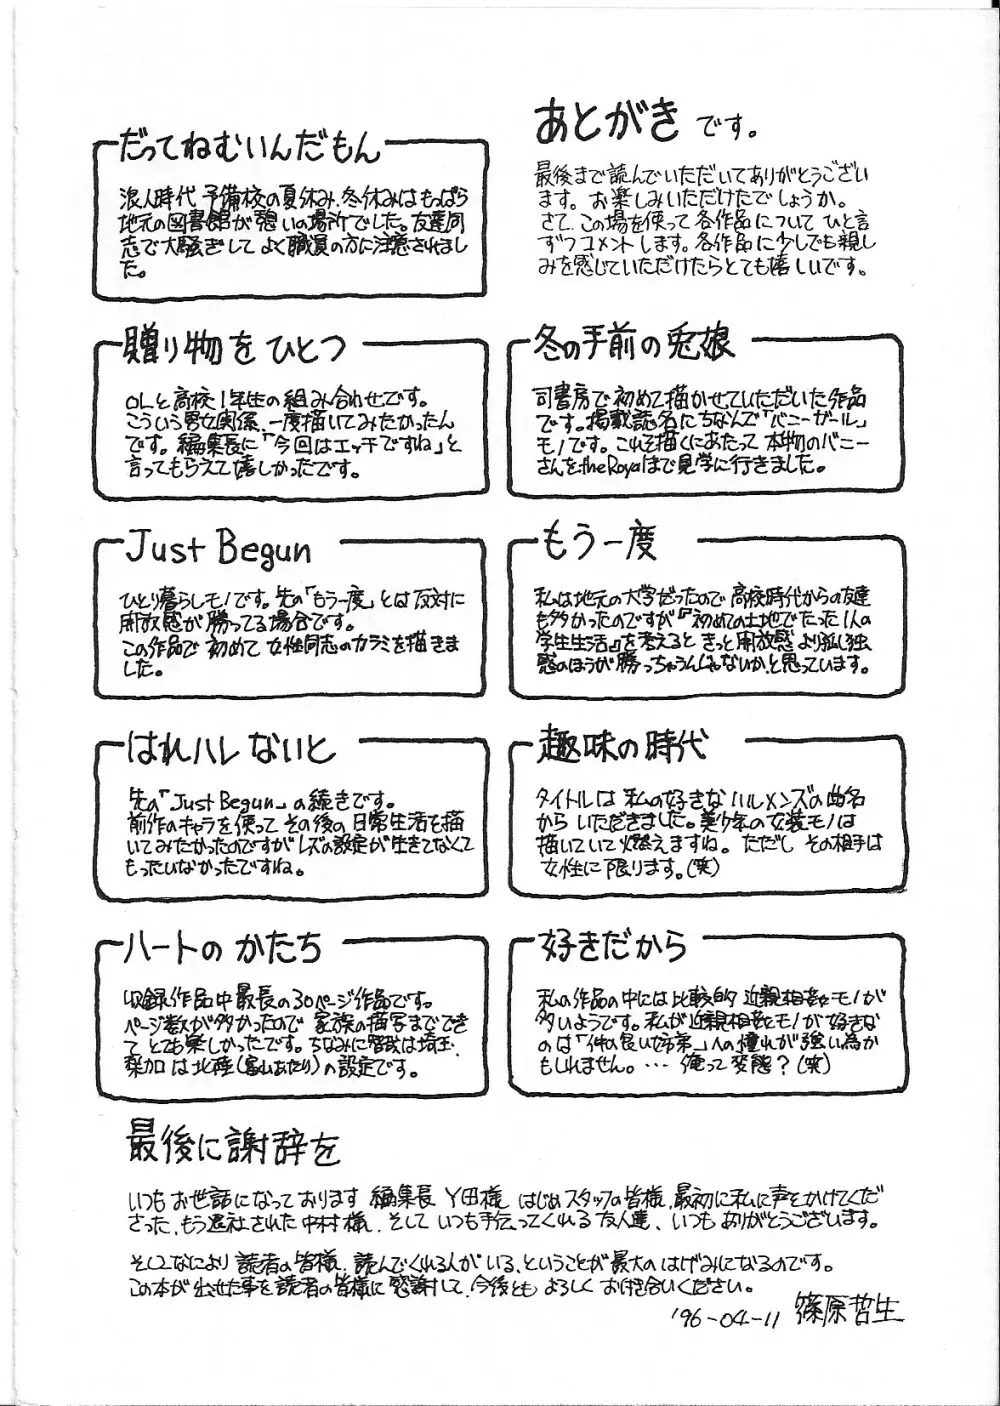 あとがきです。
最後まで読んでいただいてありがとうござい
ます。お楽しみいただけたでしょうか。
さて、この場を使って各作品について ひと言
ずつコメントします。各作品に少しでも親し
みを感じていただけたらとても嬉しいです。
冬の手前の兎娘
司書房で初めて描かせていただいた作品
です。掲載誌名にちなんで「バニーガール」
モノです。これを描くにあたって本物のバニー
さんをthe Royalまで見学に行きました。
もう一度
私は地元の大学だったので高校時代からの友達
も多かったのですが『初めての土地でたった1人の
学生生活』を考えると きっと開放感より孤独
感のほうが勝っちゃうんじゃないか、と思っています。
趣味の時代
タイトルは私の好きなハルメンズの曲名
からいただきました。美少年の女装モノは
描いていて燃えますね。ただし その相手は
女性に限ります。(笑)
好きだから
私の作品の中には比較的 近親相姦モノが
多いようです。私が近親相姦モノが好きな
のは「仲の良い姉弟」への憧れが強い為か
もしれません。…俺って変態?(笑)
だってねむいんだもん
浪人時代 予備校の夏休み、冬休みはもっぱら
地元の図書館が憩いの場所でした。友達同
志で大騒ぎしてよく職員の方に注意されまし
た。
贈り物をひとつ
OLと高校1年生の組み合わせです。
こういう男女関係、一度描いてみたかったん
です。編集長に「今回はエッチですね」と
言ってもらえて嬉しかったです。
Just Begun
ひとり暮らしモノです。先の「もう一度」とは反対に
開放感が勝ってる場合です。
この作品で初めて女性同志のカラミを描きま
した。
はれハレないと
先の「Just Begun」の続きです。
前作のキャラを使ってその後の日常生活を描
いてみたかったのですがレズの設定が生きてなくて
もったいなかったですね。
ハートのかたち
収録作品中最長の30ページ作品です。
ページ数が多かったので家族の描写までできて
とても楽しかったです。ちなみに
は埼玉、
梨加は北陸(富山あたり)の設定です。
最後に謝辞を
いつもお世話になっております 編集長 Y田様 はじめスタッフの皆様、最初に私に声をかけてくだ
さった、もう退社された中村様、そして いつも手伝ってくれる友人達、いつもありがとうございます。
そしてなにより読者の皆様、読んでくれる人がいる、ということが最大のはげみになるのです。
この本が出せた事を読者の皆様に感謝して、今後ともよろしくお付き合いください。
'96-04-11 篠原哲生